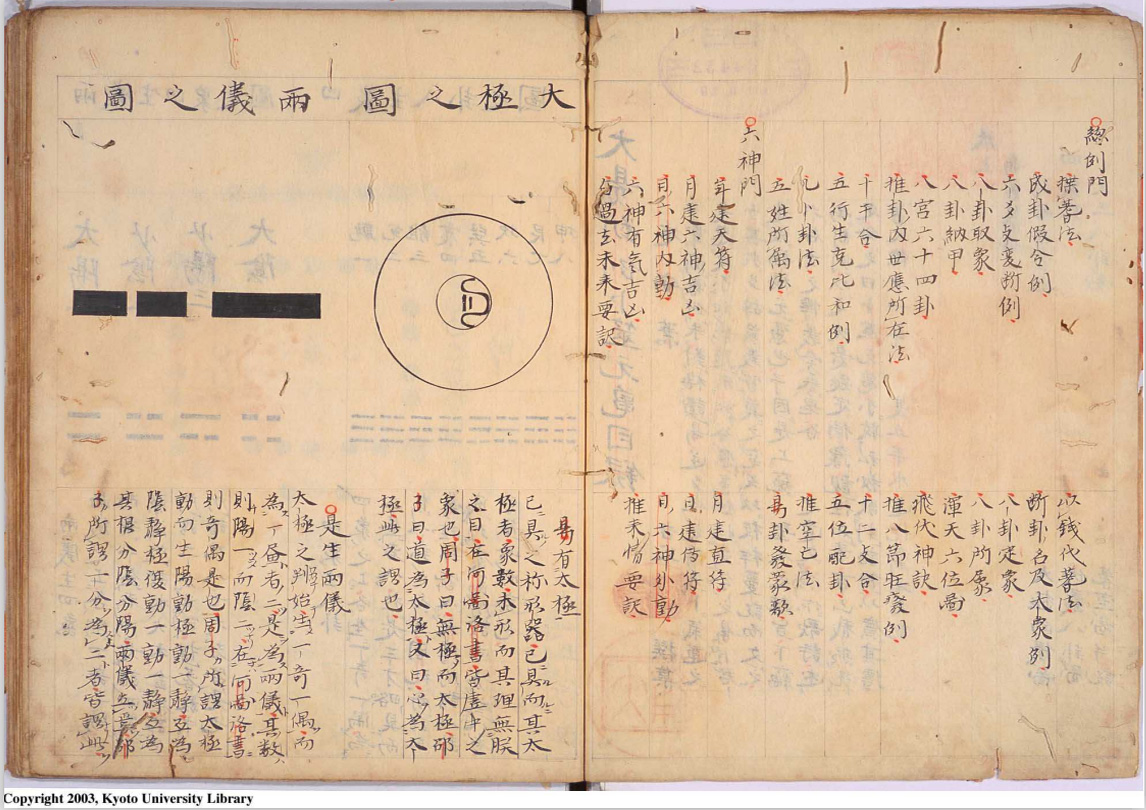 總例門
揲蓍法
以錢代蓍法
成卦假令例
断卦名及大象例
六爻支变断例
八卦定象
八卦取象
八卦所属
八卦納甲
渾天六位圖
八宮六十四卦
飛伏神訣
推卦内世應所在法
推八節旺廢例
十干合
十二支合
五行生克比和例
五位配卦
九卜卦法
推空亡法
五姓所属法
易卦發蒙歌
六神門
年建天符
月建直符
月建六神吉凶
日建傳符
日六神内動
日六神外動
六神有氣吉凶
推来情要訣
分過去未来要訳
大極之圖
兩儀之圖
易有太極
已具之称形器已具而其太
極者象數未形而其理無朕
之目在河圖洛書皆虚中之
象也周子曰無極而太極邵
子曰道為太極又曰心為太
極此之謂也
是生兩儀
太極之判始生一奇一偶而
為一畫者二是為兩儀其数
則陽一而陰二在河圖洛書
則奇偶是也周子所謂太極
動而生陽動極動一静互為
陰静極復動一動一静互為
其根分陰分陽兩儀立焉邵
子所謂一分為二者皆謂此
Copyright 2003, Kyoto University Library